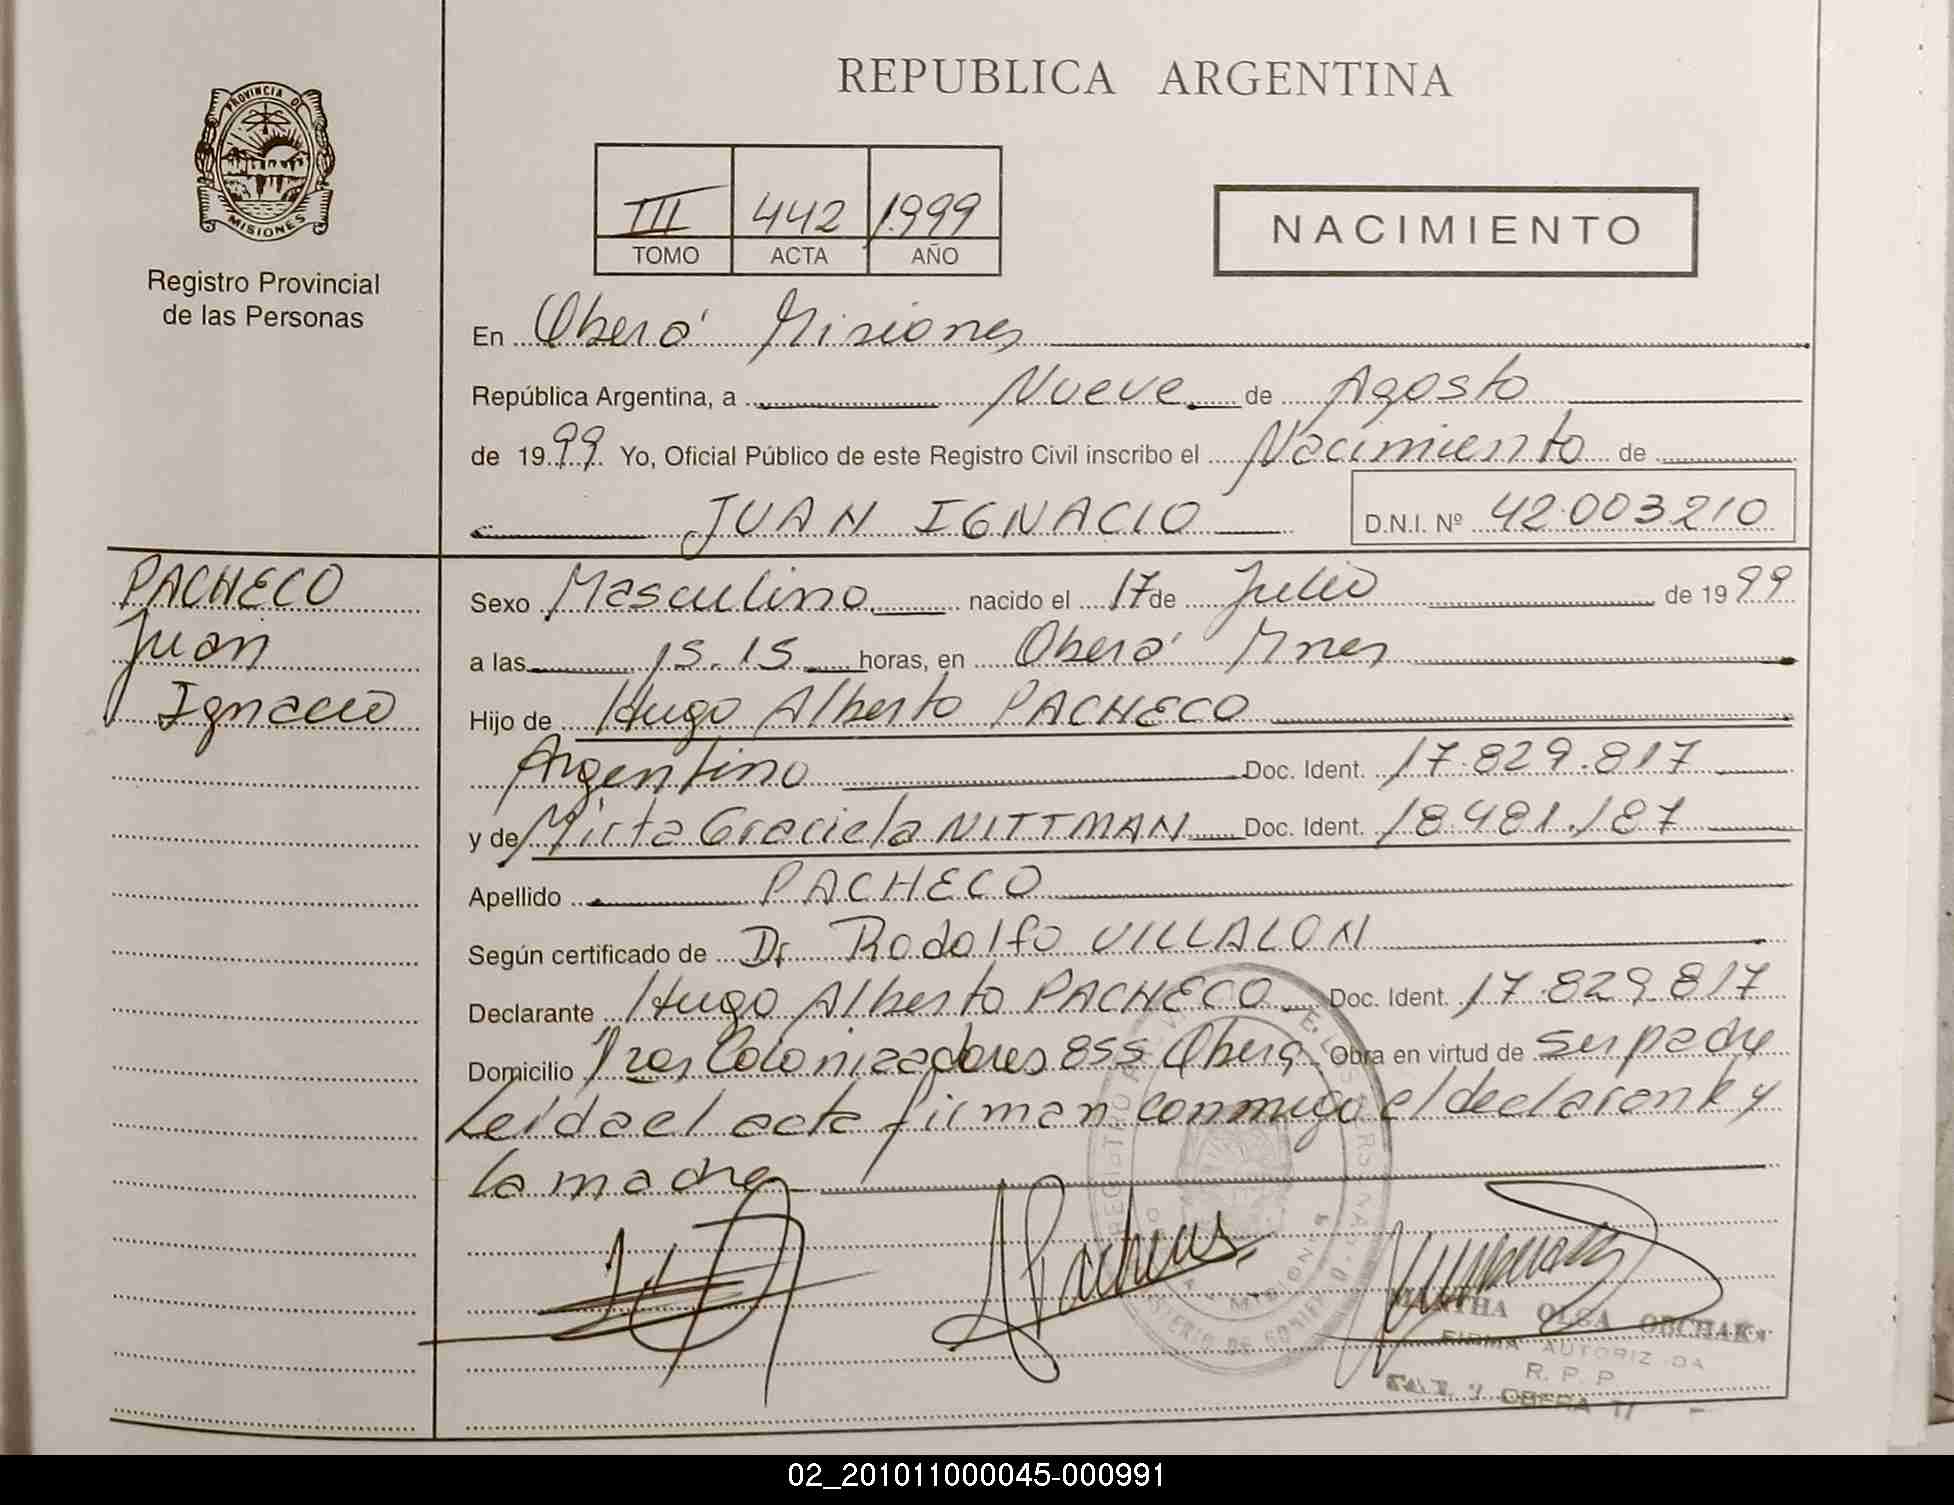 REPUBLICA ARGENTINA
PROVINCIA DE
MISIONES
Registro Provincial
de las Personas
III 442 1999
TOMO ACTA AÑO
NACIMIENTO
En Oberá Misiones
República Argentina, a Nueve de Agosto
de 1999 Yo, Oficial Público de este Registro Civil inscribo el Nacimiento de
JUAN IGNACIO D.N.I. Nº 42.003.210
PACHECO
Juan
Ignacio
Sexo Masculino nacido el 17 de Julio de 1999
a las 15.15 horas, en Oberá Mnes
Hijo de Hugo Alberto PACHECO
Argentino Doc. Ident. 17.829.817
y de Mirta Graciela NITTMAN Doc. Ident. 18.481.187
Apellido PACHECO
Según certificado de Dr Rodolfo VILLALON
Declarante Hugo Alberto PACHECO Doc. Ident. 17.829.817
Domicilio Colonizadores 855 Oberá Obra en virtud de ser padre
Leida el acta firman conmigo el declarante y
la madre
MISIONES
MARTHA OLGA
FIRMA AUTORIZADA
R. P. P.
OBERA
02_201011000045-000991